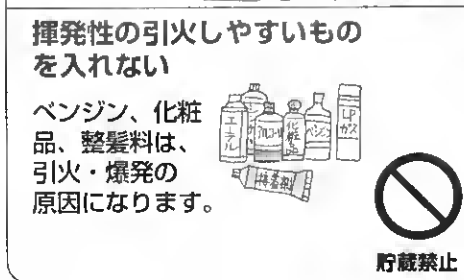 揮発性の引火しやすいもの
を入れない
ベンジン、化粧
品、整髪料は、
引火・爆発の
原因になります。
エーテル
アルコール
化粧品
ベンジン
LPガス
接着剤
貯蔵禁止